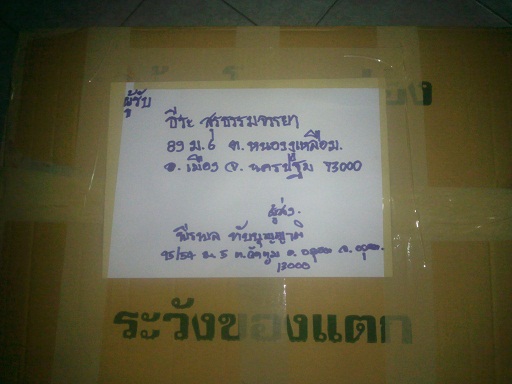 ผู้รับ
ธีระ สุรธรรมจรรยา
89 ม.6 ต.หนองงูเหลือม.
อ.เมือง จ.นครปฐม 73000
ผู้ส่ง.
พีรพล ทับบุญญาติ
ม.5 ต. อ.อยุธยา จ.อยุธยา.
13000
ระวังของแตก